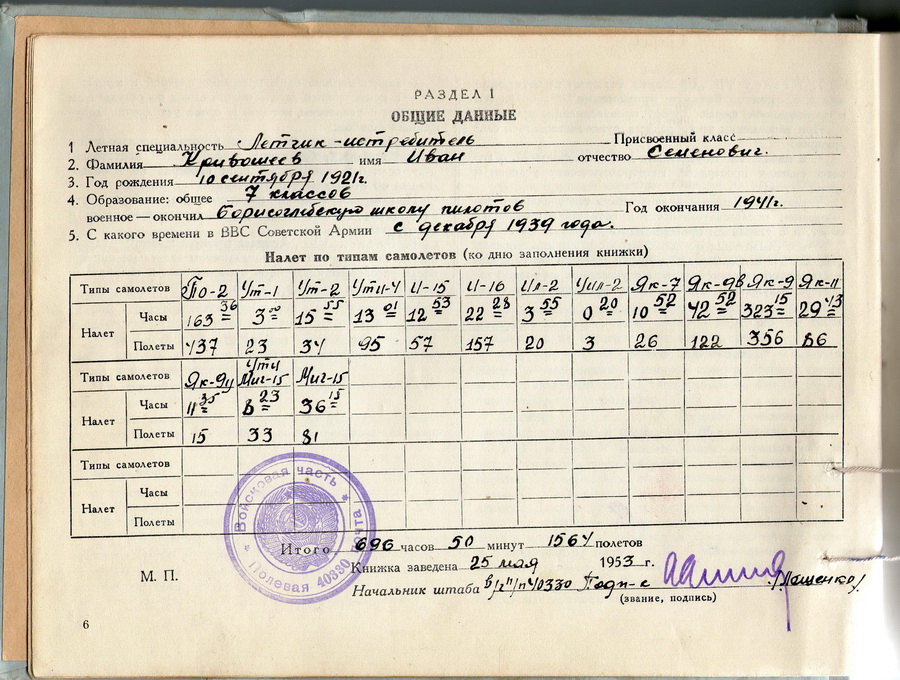 РАЗДЕЛ 1
ОБЩИЕ ДАННЫЕ
1 Летная специальность Летчик-истребитель Присвоенный класс
2. Фамилия Кривошеев имя Иван отчество Семенович.
3. Год рождения 10 сентября 1921г.
4. Образование: общее 7 классов
военное — окончил Борисоглебскую школу пилотов Год окончания 1941г.
5. С какого времени в ВВС Советской Армии с декабря 1939 года.
Налет по типам самолетов (ко дню заполнения книжки)
Типы самолетов По-2 Ут-1 Ут-2 Ути-4 И-15 И-16 Ил-2 Уил-2 Як-7 Як-9в Як-9 Як-11
Налет Часы 163 36 3 00 15 55 13 01 12 53 22 28 3 55 0 20 10 52 42 52 323 15 29 43
Полеты 437 23 34 95 57 157 20 3 26 122 356 86
Типы самолетов Як-9у Ути Миг-15 Миг-15
Налет Часы 11 35 8 23 36 15
Полеты 15 33 81
Типы самолетов
Налет Часы
Полеты
Войсковая часть Полевая почта 40330
Итого 696 часов 50 минут 1564 полетов
М. П. Книжка заведена 25 мая 1953 г.
Начальник штаба в/ч п/п 40330 Подп-к /Лащенко/
(звание, подпись)
6